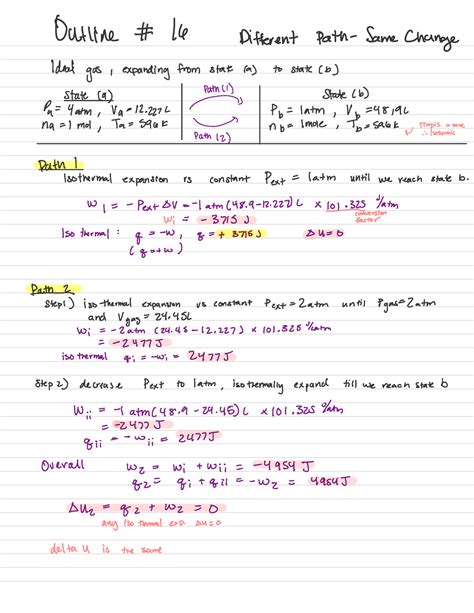 Outline # 16
Different Path - Same Change
Ideal gas, expanding from state (a) to state (b)
State (a)
Pa = 4atm, Va = 12.227L
na = 1 mol, Ta = 596K
Path (1)
Path (2)
State (b)
Pb = 1atm, Vb = 48.9L
nb = 1mole, Tb = 596K
temp is same
∴ isothermic
Path 1
Isothermal expansion vs constant Pext = 1atm until we reach state b.
W1 = -Pext ΔV = -1 atm (48.9-12.227) L × 101.325 J/atm
conversion
factor
Wi = -3715 J
Isothermal: q = -w, q = + 3715 J ΔU = 0
(q = +w)
Path 2
Step 1) isothermal expansion vs constant Pext = 2atm until Pgas = 2atm
and Vgas = 24.45L
Wi = -2atm (24.45 - 12.227) × 101.325 J/atm
= -2477J
isothermal qi = -wi = 2477J
Step 2) decrease Pext to 1atm, isothermally expand till we reach state b
Wii = -1 atm (48.9 - 24.45) L × 101.325 J/atm
= -2477J
qii = -wii = 2477J
Overall W2 = Wi + Wii = -4954J
q2 = qi + qii = -W2 = 4954J
ΔU2 = q2 + W2 = 0
any isothermal exp. ΔU=0
delta U is the same